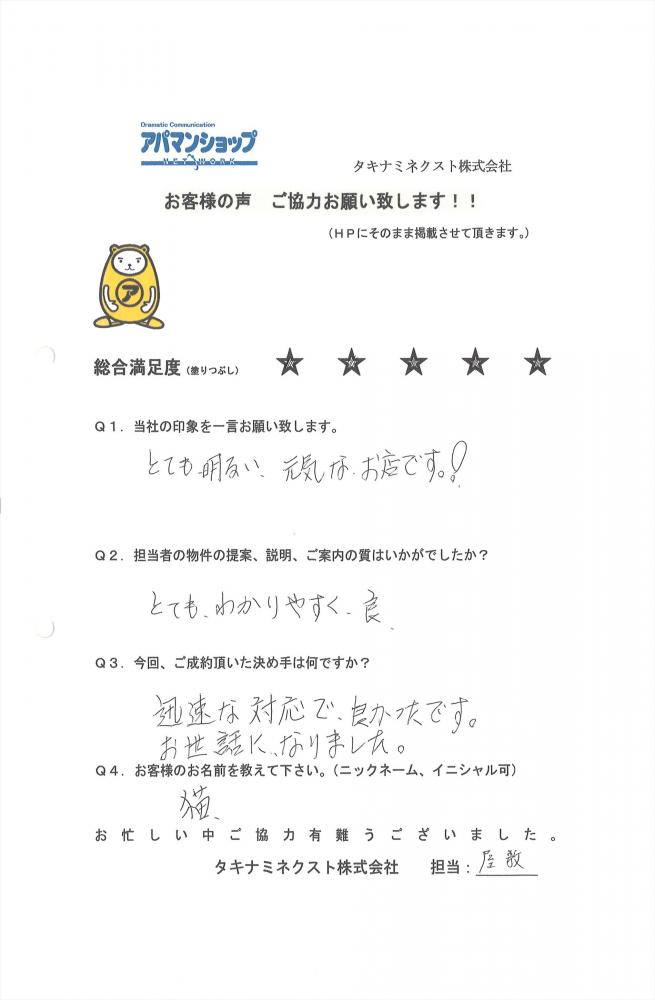 Dramatic Communication
アパマンショップ
NETWORK
タキナミネクスト株式会社
お客様の声　ご協力お願い致します！！
（ＨＰにそのまま掲載させて頂きます。）
ア
総合満足度（塗りつぶし）　★　★　★　★　★
Ｑ１．当社の印象を一言お願い致します。
とても、明るい、元気な、お店です。！
Ｑ２．担当者の物件の提案、説明、ご案内の質はいかがでしたか？
とても、わかりやすく、良、
Ｑ３．今回、ご成約頂いた決め手は何ですか？
迅速な対応で、良かったです。
お世話に、なりました。
Ｑ４．お客様のお名前を教えて下さい。（ニックネーム、イニシャル可）
猫、
お忙しい中ご協力有難うございました。
タキナミネクスト株式会社　担当：屋敷